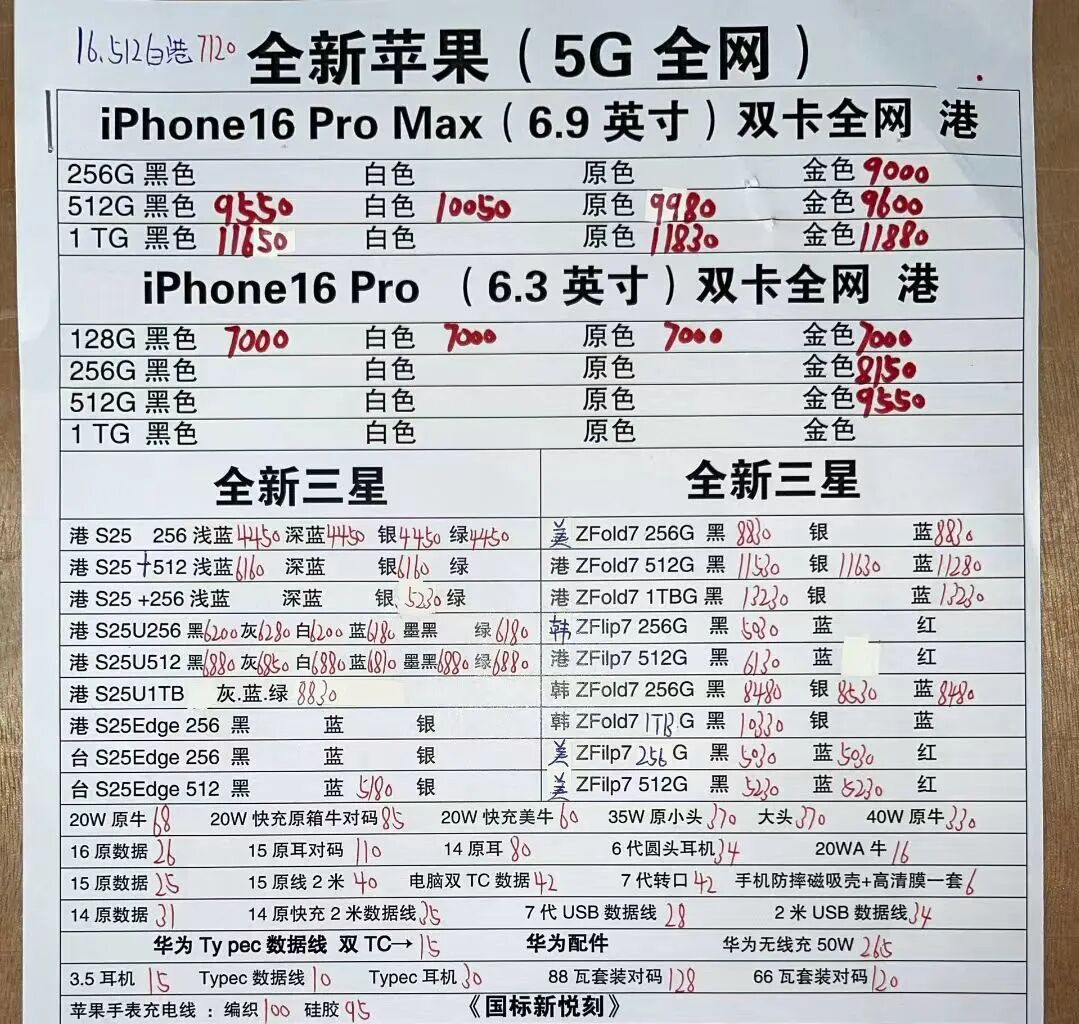 16.512白港7120
全新苹果（5G 全网）
iPhone16 Pro Max（6.9 英寸）双卡全网 港
256G 黑色 白色 原色 金色 9000
512G 黑色 9550 白色 10050 原色 9980 金色 9600
1 TG 黑色 11650 白色 原色 11830 金色 11880
iPhone16 Pro （6.3 英寸）双卡全网 港
128G 黑色 7000 白色 7000 原色 7000 金色 7000
256G 黑色 白色 原色 金色 8150
512G 黑色 白色 原色 金色 9550
1 TG 黑色 白色 原色 金色
全新三星
港 S25 256 浅蓝 4450 深蓝 4450 银 4450 绿 4450
港 S25 +512 浅蓝 6160 深蓝 银 6160 绿
港 S25 +256 浅蓝 深蓝 银 5230 绿
港 S25U256 黑 6200 灰 6280 白 6200 蓝 6180 墨黑 绿 6180
港 S25U512 黑 6880 灰 6850 白 6880 蓝 6810 墨黑 6880 绿 6880
港 S25U1TB 灰.蓝.绿 8830
港 S25Edge 256 黑 蓝 银
台 S25Edge 256 黑 蓝 银
台 S25Edge 512 黑 蓝 5180 银
全新三星
美 ZFold7 256G 黑 8830 银 蓝 8830
港 ZFold7 512G 黑 11530 银 11630 蓝 11280
港 ZFold7 1TBG 黑 13230 银 蓝 13230
韩 ZFlip7 256G 黑 5030 蓝 红
港 ZFilp7 512G 黑 6130 蓝 红
韩 ZFold7 256G 黑 8480 银 8530 蓝 8480
韩 ZFold7 1TB G 黑 10330 银 蓝
美 ZFilp7 256 G 黑 5030 蓝 5030 红
美 ZFilp7 512G 黑 5230 蓝 5230 红
20W 原牛 68 20W 快充原箱牛对码 85 20W 快充美牛 60 35W 原小头 370 大头 370 40W 原牛 330
16 原数据 26 15 原耳对码 110 14 原耳 80 6 代圆头耳机 34 20WA 牛 16
15 原数据 25 15 原线 2 米 40 电脑双 TC 数据 42 7 代转口 42 手机防摔磁吸壳+高清膜一套 6
14 原数据 31 14 原快充 2 米数据线 35 7 代 USB 数据线 28 2 米 USB 数据线 34
华为 Ty pec 数据线 双 TC→ 15 华为配件 华为无线充 50W 265
3.5 耳机 15 Typec 数据线 10 Typec 耳机 30 88 瓦套装对码 128 66 瓦套装对码 120
苹果手表充电线 ：编织 100 硅胶 95 《国标新悦刻》